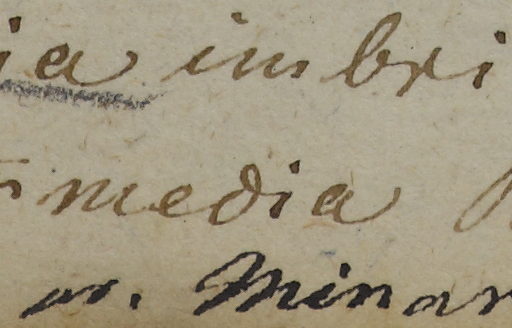 ia imbri
media
m. Minar